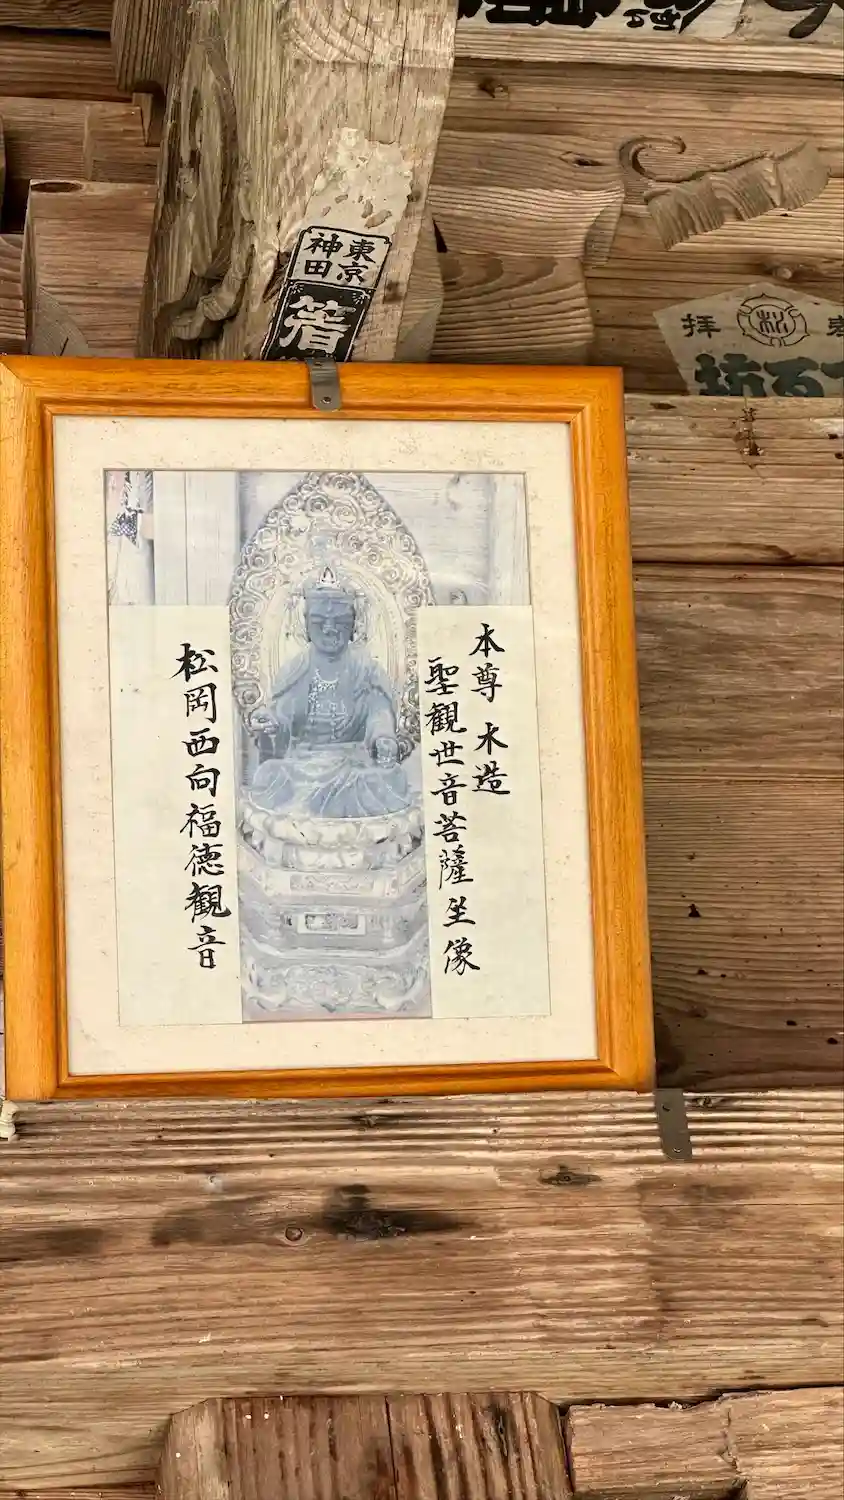 東京
神田
拝
松
本尊 木造
聖観世音菩薩坐像
松岡西向福徳観音